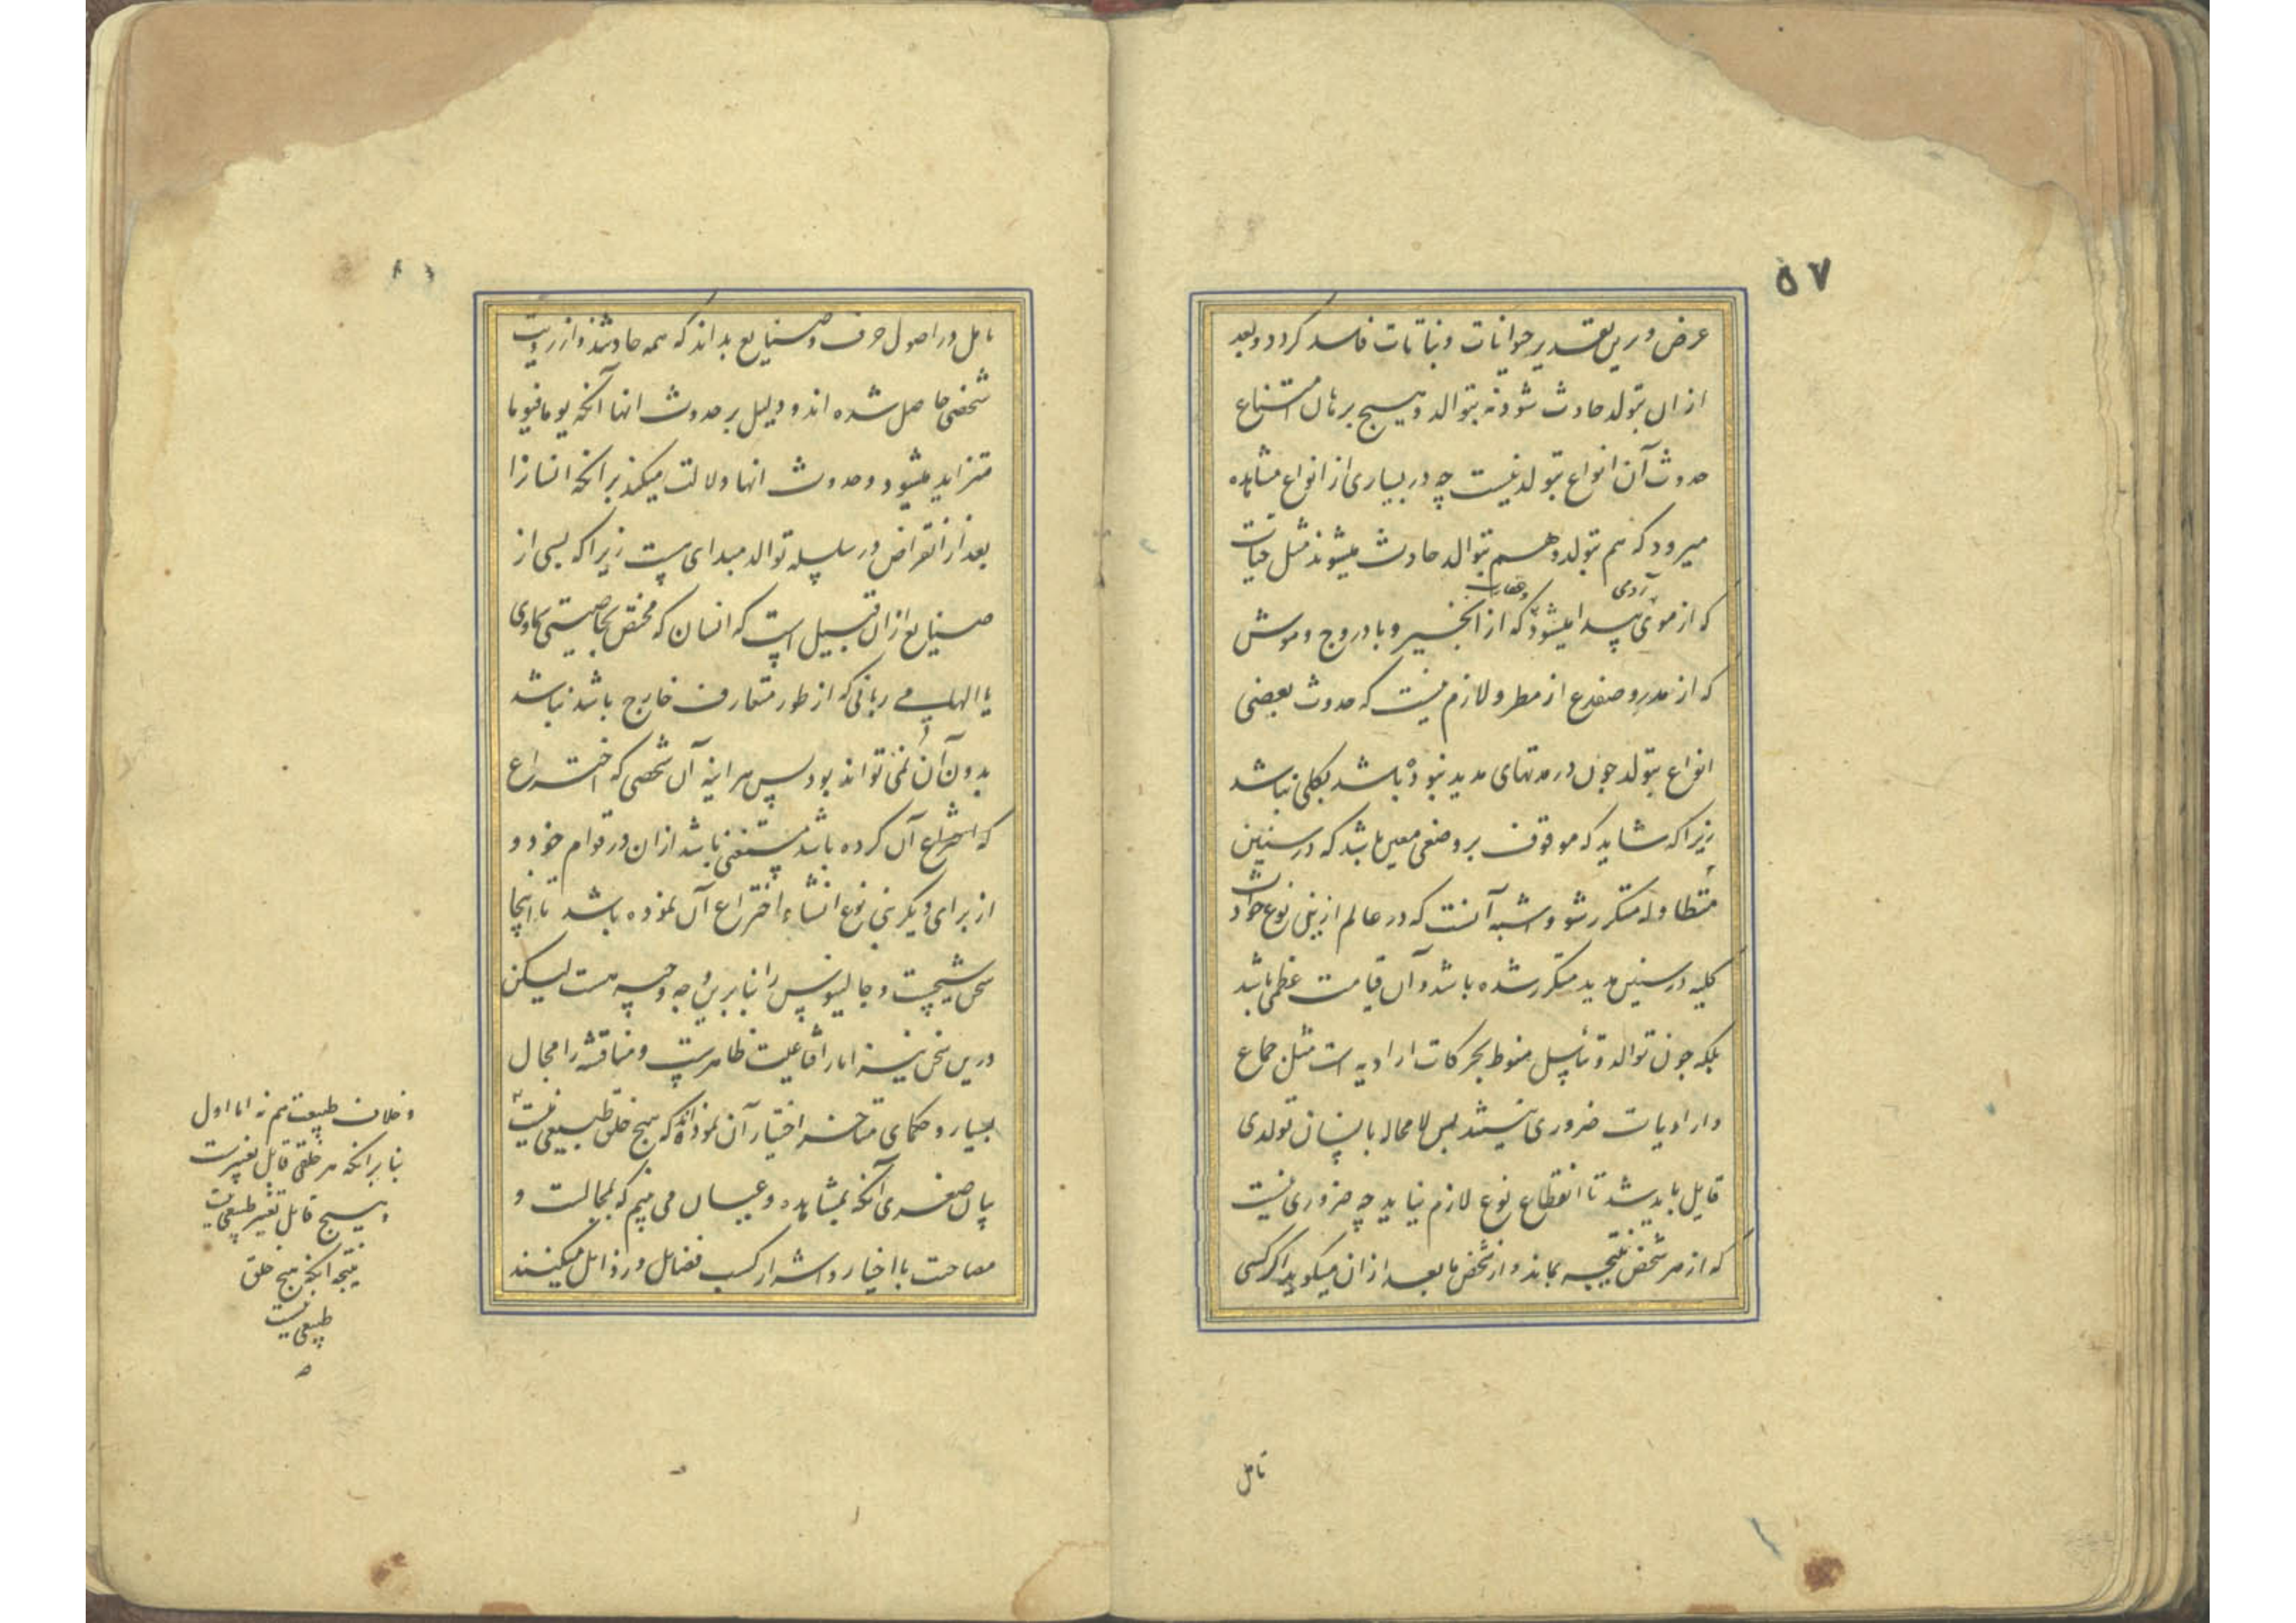 ۵۷
عرض و درین تقدیر حیوانات و نباتات فاسد کردد و بعد
از ان بتولد حادث شود نه بتوالد و هیچ برهان امتناع
حدوث آن انواع بتولد نیست چه در بسیاری از انواع مشاهده
میرود که هم بتولد و هم بتوالد حادث میشوند مثل حیات
که از موی آدمی پیدا میشود و عقارب که از انجیر و بادروج و موش
که از مدر و ضفدع از مطر و لازم نیست که حدوث بعضی
انواع بتولد چون در مدتهای مدید نبوده باشد بکلی نباشد
زیرا که شاید که موقوف بر وضعی معین باشد که در سنین
متطاوله متکرر شود و اشبه آنست که در عالم ازین نوع حوادث
کلیه در سنین مدید متکرر شده باشد و آن قیامت عظمی باشد
بلکه چون توالد و تناسل منوط بحرکات ارادیه است مثل جماع
و ارادیات ضروری نیستند پس لا محاله بانسان تولدی
قایل باید شد تا انقطاع نوع لازم نیاید چه ضروری نیست
که از هر شخص نتیجه بماند و از شخص ما بعد از ان میکوید اکر کسی
تامل
تامل در اصول حرف و صنایع بداند که همه حادثند و از رویت
شخصی حاصل شده اند و دلیل بر حدوث انها آنکه یوما فیوما
متزاید میشود و حدوث انها دلالت میکند بر انکه انسانرا
بعد از انقراض در سلسله توالد مبدای هست زیرا که بسی از
صنایع از ان قبیل است که انسان که مختص بخاصیتی سماوی
یا الهامی ربانی که از طور متعارف خارج باشد نباشد
بدون آن نمی تواند بود پس هر اینه آن شخصی که اختراع
که اختراع آن کرده باشد مستغنی باشد از ان در قوام خود و
از برای دیکر بنی نوع انشاء اختراع آن نموده باشد تا اینجا
سخن شیخست و جالینوس را بنا برین وجه وجیه هست لیکن
درین سخن نیز اما راقناعیت ظاهرست و مناقشه را مجال
بسیار و حکمای متاخر اختیار آن نموده اند که هیچ خلق طبیعی نیست
بیان صغری آنکه بمشاهده و عیان می بینم که بمجالست و
مصاحبت با اخیار و اشرار کسب فضایل و رذایل میکنند
و خلاف طبیعت هم نه اما اول
بنا برانکه هر خلقی قابل تغییرست
و هیچ قابل تغییر طبیعی نیست
نتیجه انکه هیچ خلق
طبیعی نیست